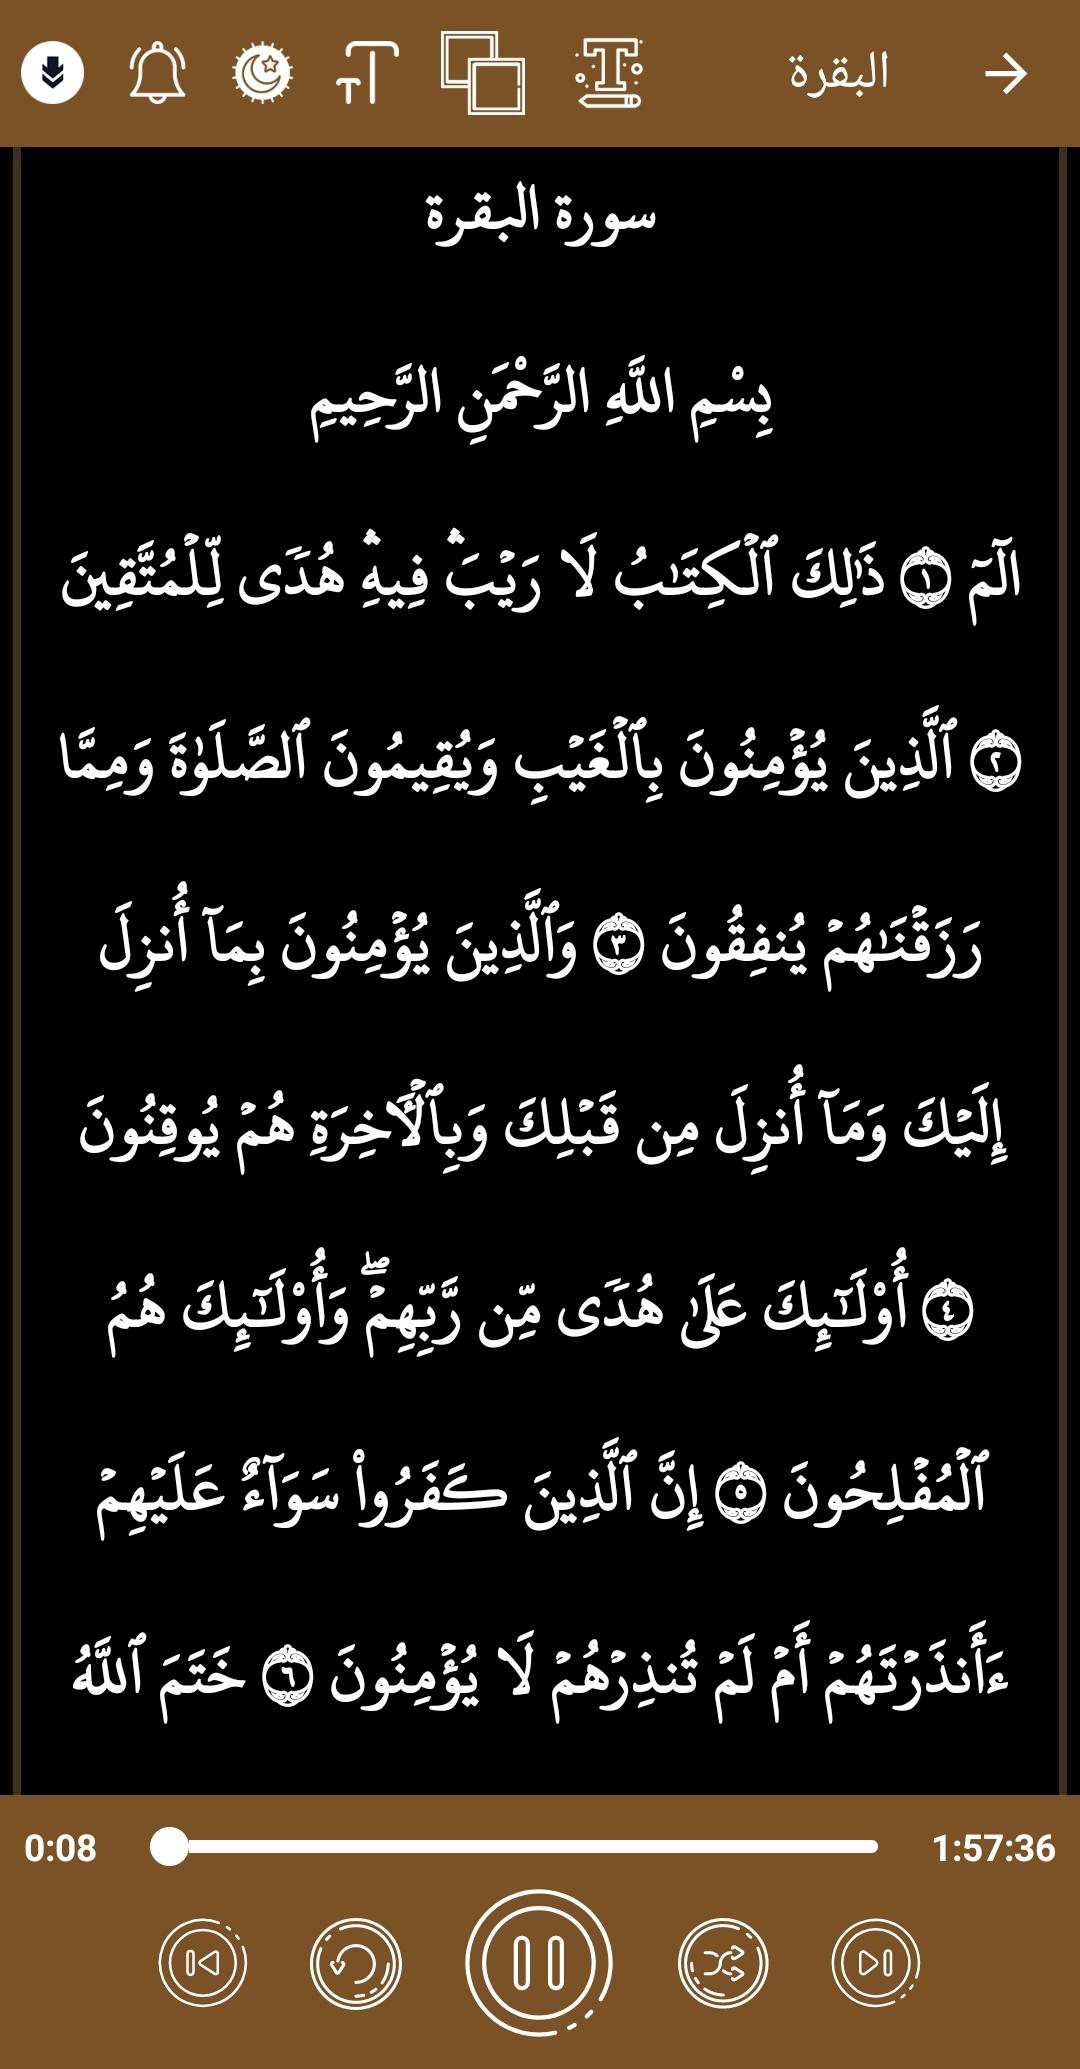 البقرة
سورة البقرة
بِسْمِ اللَّهِ الرَّحْمَنِ الرَّحِيمِ
الٓمٓ ۝١ ذَٰلِكَ ٱلْكِتَـٰبُ لَا رَيْبَ ۛ فِيهِ ۛ هُدًى لِّلْمُتَّقِينَ
۝٢ ٱلَّذِينَ يُؤْمِنُونَ بِٱلْغَيْبِ وَيُقِيمُونَ ٱلصَّلَوٰةَ وَمِمَّا
رَزَقْنَـٰهُمْ يُنفِقُونَ ۝٣ وَٱلَّذِينَ يُؤْمِنُونَ بِمَآ أُنزِلَ
إِلَيْكَ وَمَآ أُنزِلَ مِن قَبْلِكَ وَبِٱلْـَٔاخِرَةِ هُمْ يُوقِنُونَ
۝٤ أُوْلَـٰٓئِكَ عَلَىٰ هُدًى مِّن رَّبِّهِمْ ۖ وَأُوْلَـٰٓئِكَ هُمُ
ٱلْمُفْلِحُونَ ۝٥ إِنَّ ٱلَّذِينَ كَفَرُوا۟ سَوَآءٌ عَلَيْهِمْ
ءَأَنذَرْتَهُمْ أَمْ لَمْ تُنذِرْهُمْ لَا يُؤْمِنُونَ ۝٦ خَتَمَ ٱللَّهُ
0:08 1:57:36